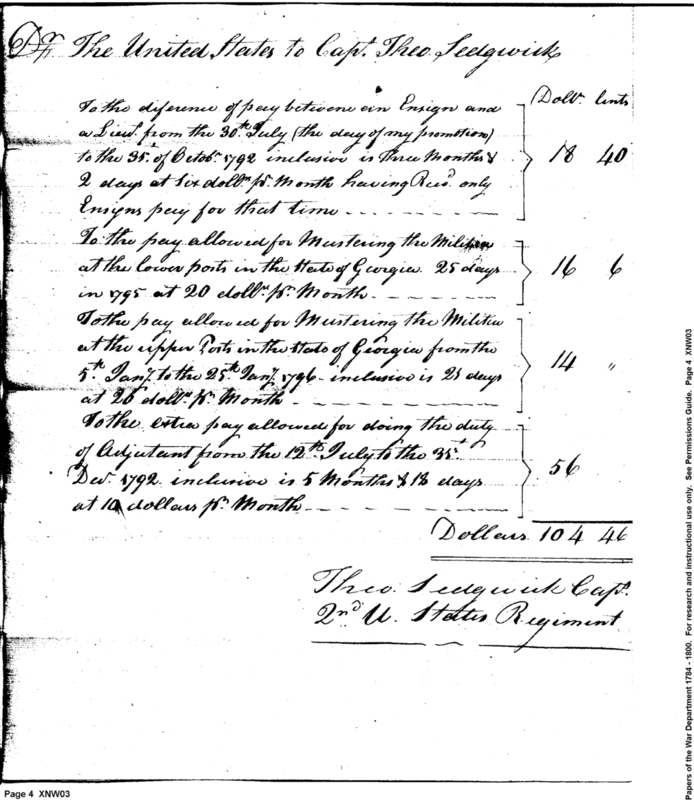 Dr The United States to Capt. Theo. Sedgwick
Dollr. Cents
To the diference of pay betwene an Ensign and
a Lieut. from the 30th July (the day of my promotion)
to the 31st of Octobr. 1792 inclusive is three Months &
2 days at Six dollrs pr. Month having Recd. only
Ensigns pay for that time 18 40
To the pay allowed for Mustering the Militia
at the lower posts in the state of Georgia 25 days
in 1795 at 20 dollrs pr. Month 16 6
To the pay allowed for Mustering the Militia
at the upper Posts in the state of Georgia from the
5th Jany. to the 25th Jany. 1796 inclusive is 21 days
at 20 dollrs pr. Month 14 "
To the extra pay allowed for doing the duty
of Adjutant from the 12th July to the 31st
Decr. 1792 inclusive is 5 Months & 18 days
at 10 dollars pr. Month 56
Dollars 104 46
Theo. Sedgwick Capt.
2nd U. States Regiment
Page 4 XNW03
Papers of the War Department 1784 - 1800. For research and instructional use only. See Permissions Guide. Page 4 XNW03